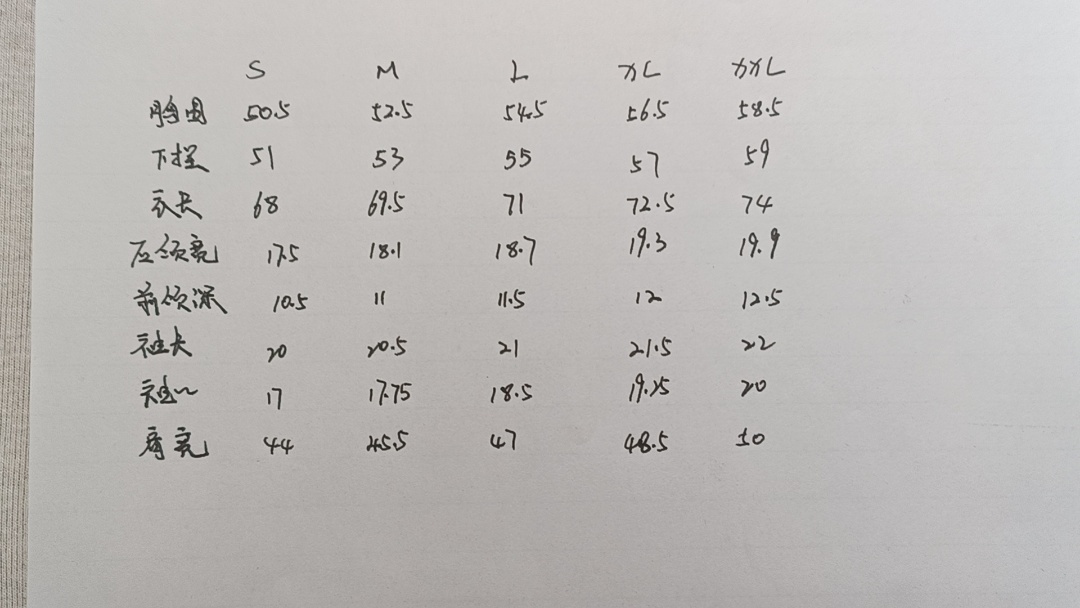 S M L XL XXL
胸围 50.5 52.5 54.5 56.5 58.5
下摆 51 53 55 57 59
衣长 68 69.5 71 72.5 74
后领宽 17.5 18.1 18.7 19.3 19.9
前领深 10.5 11 11.5 12 12.5
袖长 20 20.5 21 21.5 22
袖口 17 17.75 18.5 19.25 20
肩宽 44 45.5 47 48.5 50